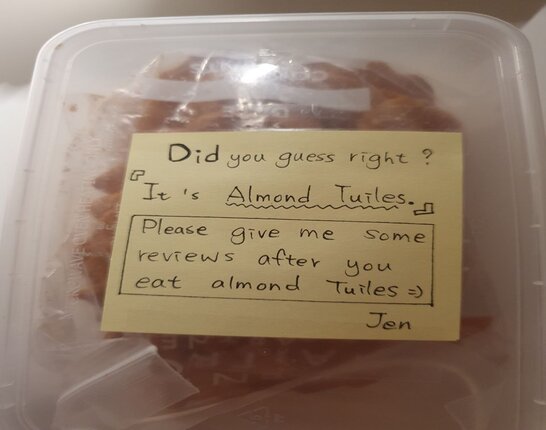 Did you guess right ?
『It's Almond Tuiles.』
Please give me some
reviews after you
eat almond Tuiles =)
Jen